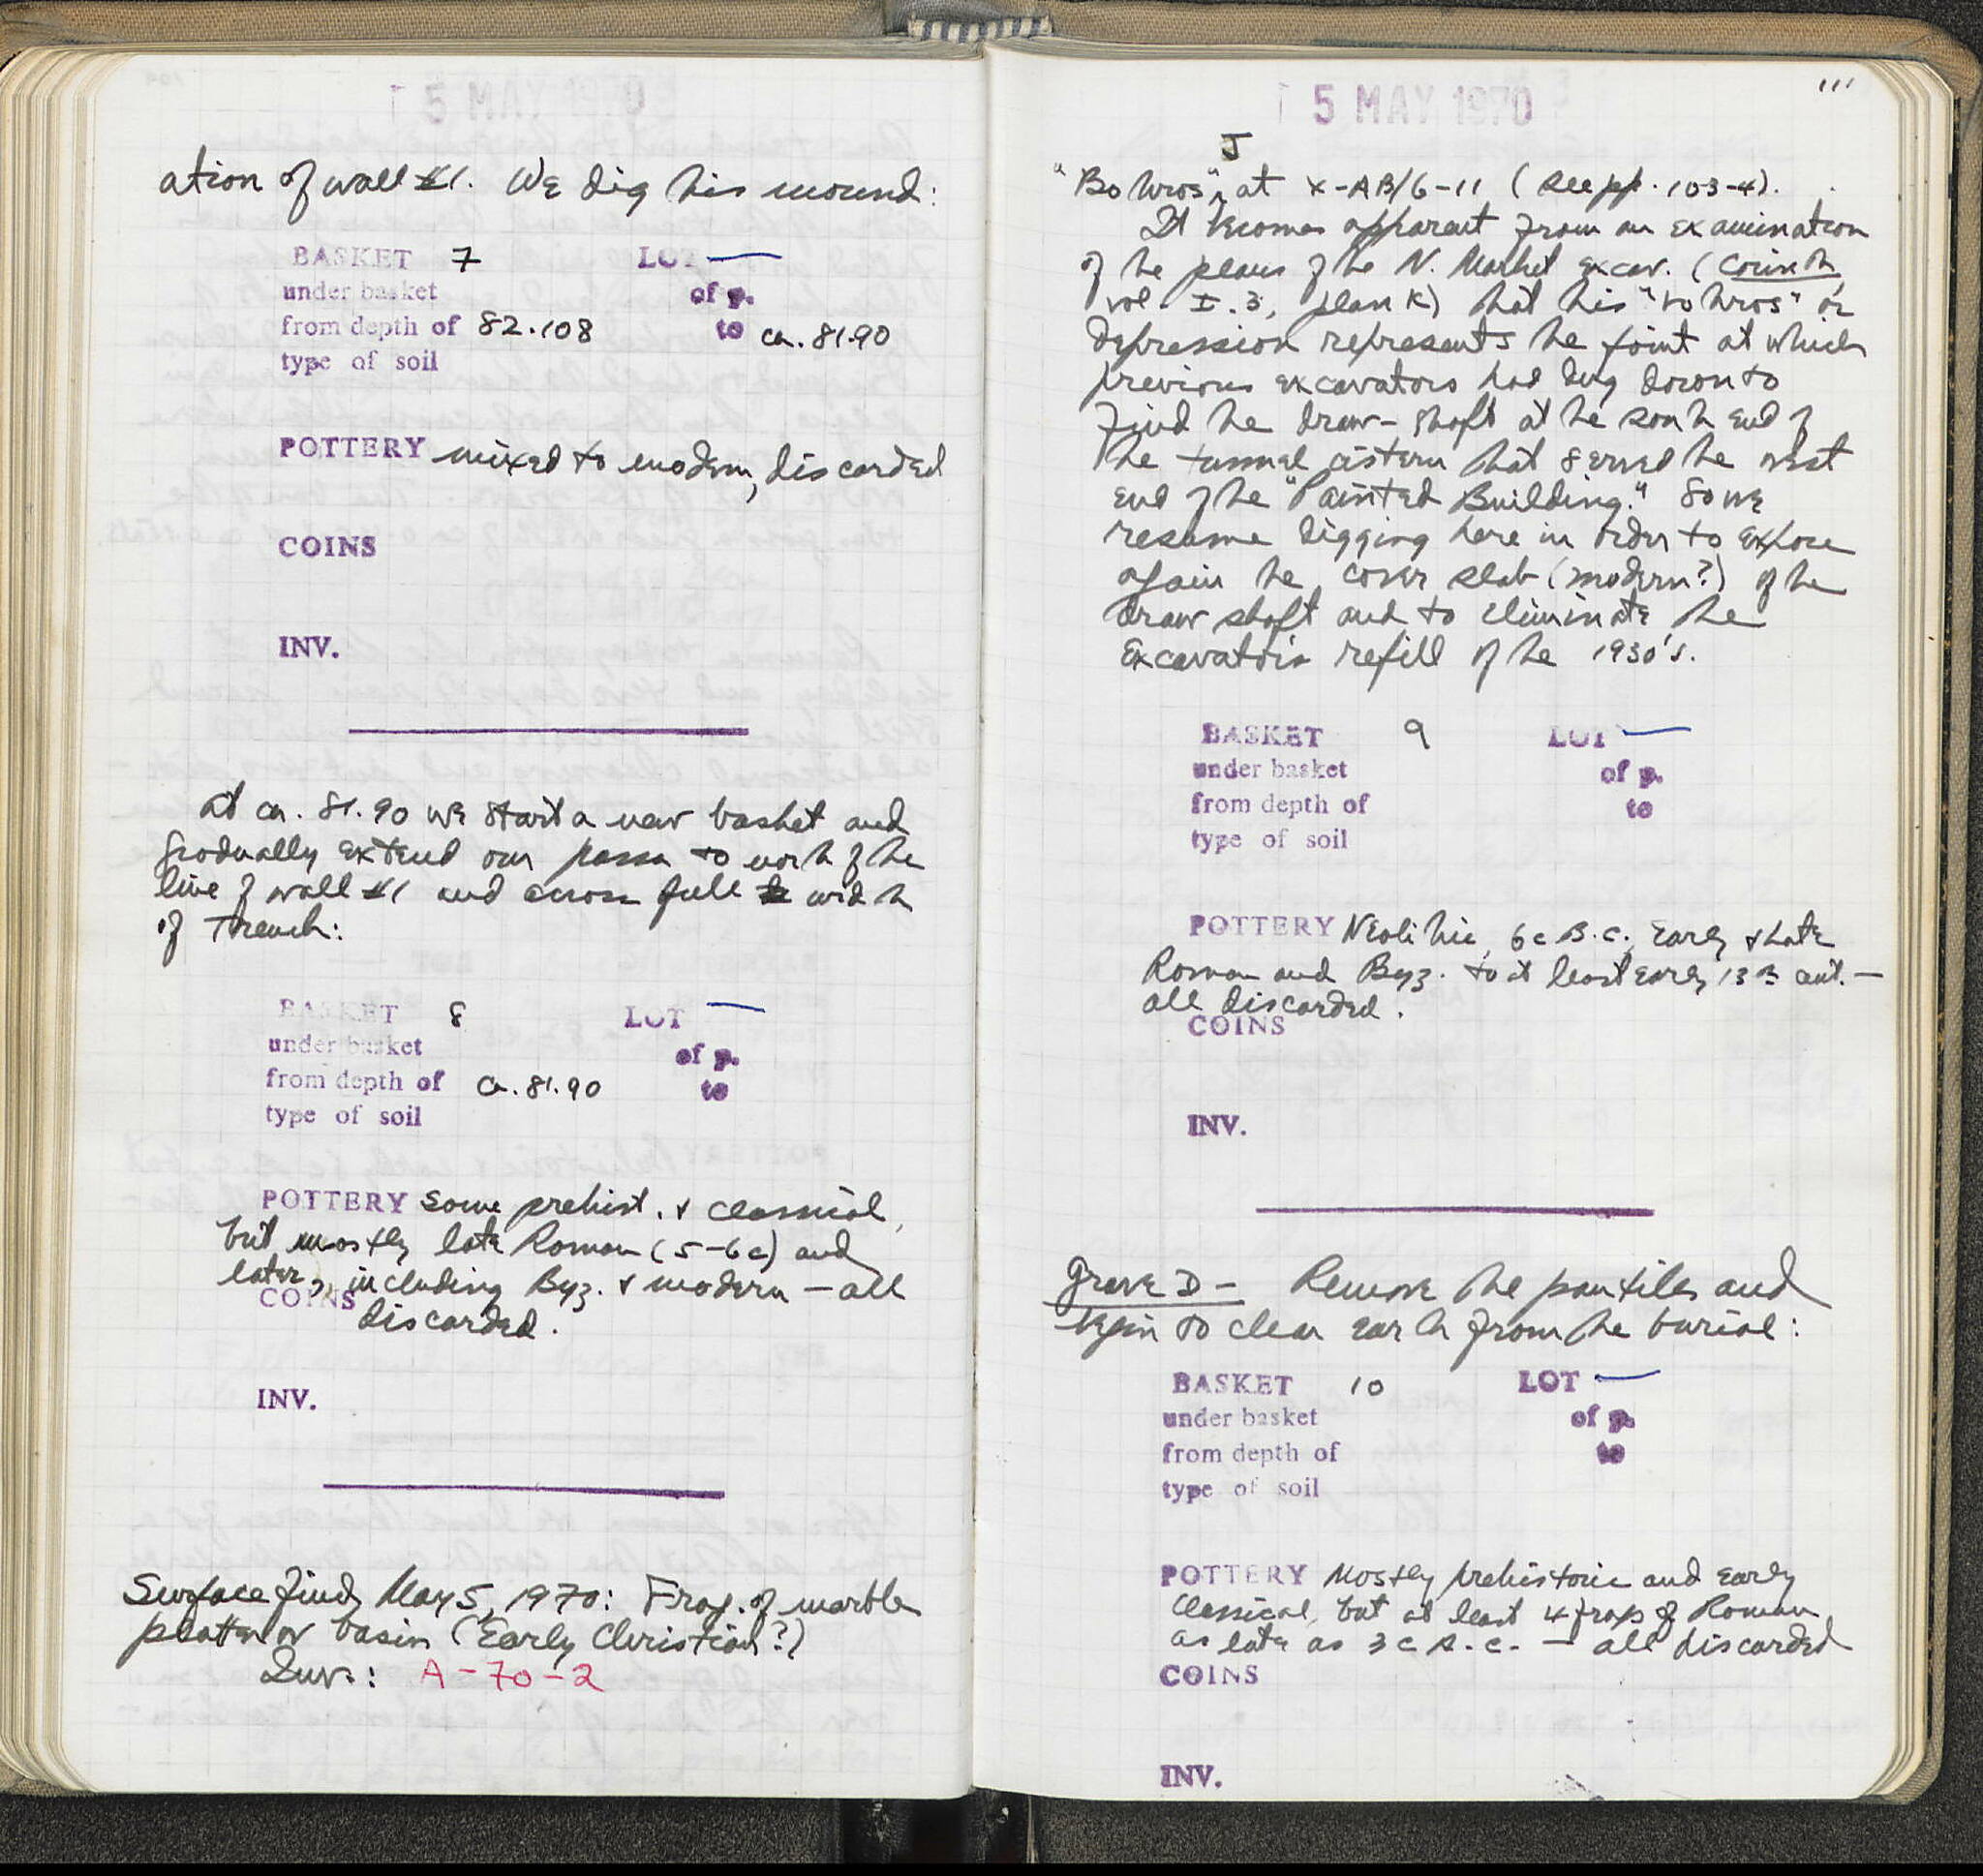 5 MAY 1970
ation of wall 1. We dig this mound:
BASKET 7 LOT —
under basket of p.
from depth of 82.108 to ca. 81.90
type of soil
POTTERY mixed to modern, discarded
COINS
INV.
At ca. 81.90 we start a new basket and
gradually extend our passes to north of the
line of wall 1 and across full width
of Trench:
BASKET 8 LOT —
under basket of p.
from depth of ca. 81.90 to
type of soil
POTTERY some prehist. & classical,
but mostly late Roman (5-6 c) and
later, including Byz. & modern — all
COINS discarded.
INV.
Surface find, May 5, 1970: Frag. of marble
platter or basin (Early Christian?)
Inv.: A-70-2
5 MAY 1970
111
"Bothros" J at X-AB/6-11 (see pp. 103-4).
It becomes apparent from an examination
of the plans of the N. Market excav. (Corinth,
vol. I.3, plan K) that this "bothros" or
depression represents the point at which
previous excavators had dug down to
find the draw-shaft at the south end of
the tunnel cistern that served the west
end of the "Painted Building." So we
resume digging here in order to expose
again the cover slab (modern?) of the
draw shaft and to eliminate the
excavators refill of the 1930's.
BASKET 9 LOT —
under basket of p.
from depth of to
type of soil
POTTERY Neolithic, 6c B.C., Early & Late
Roman and Byz. to at least early 13th cent. —
all discarded.
COINS
INV.
Grave D — Remove the pantiles and
begin to clear earth from the burial:
BASKET 10 LOT —
under basket of p.
from depth of to
type of soil
POTTERY Mostly prehistoric and early
classical, but at least 4 frags of Roman,
as late as 3 c A.C. — all discarded
COINS
INV.